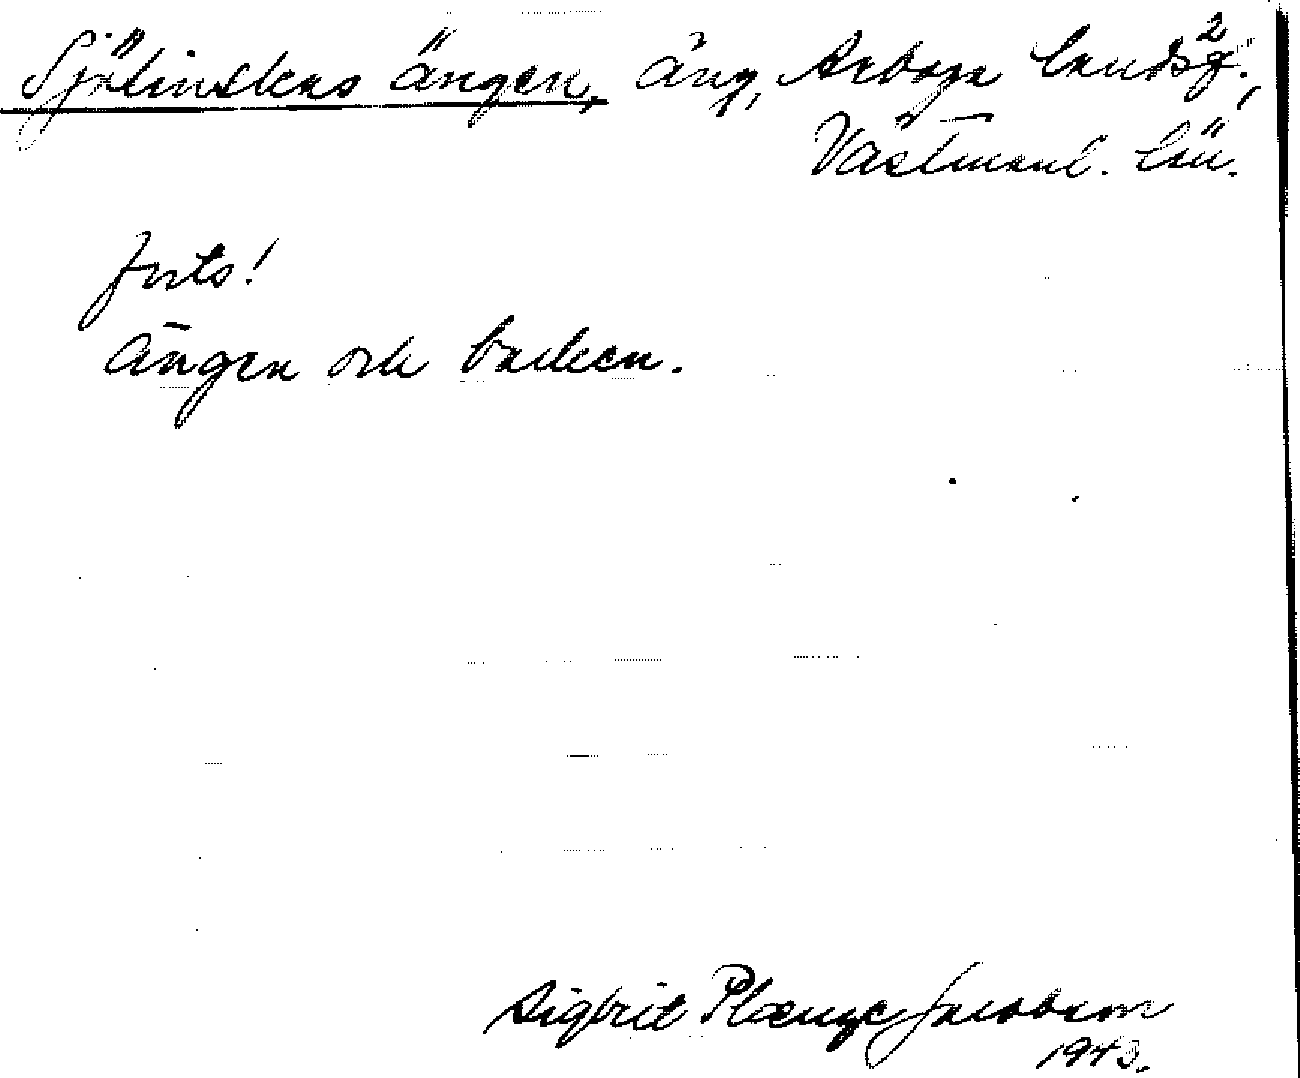 Sjölinskens ängen, äng, Arboga landsf.,
2
Västmanl. län.
Forts!
Ängen och backen.
Sigfrid Plænge Jacobson
1943.